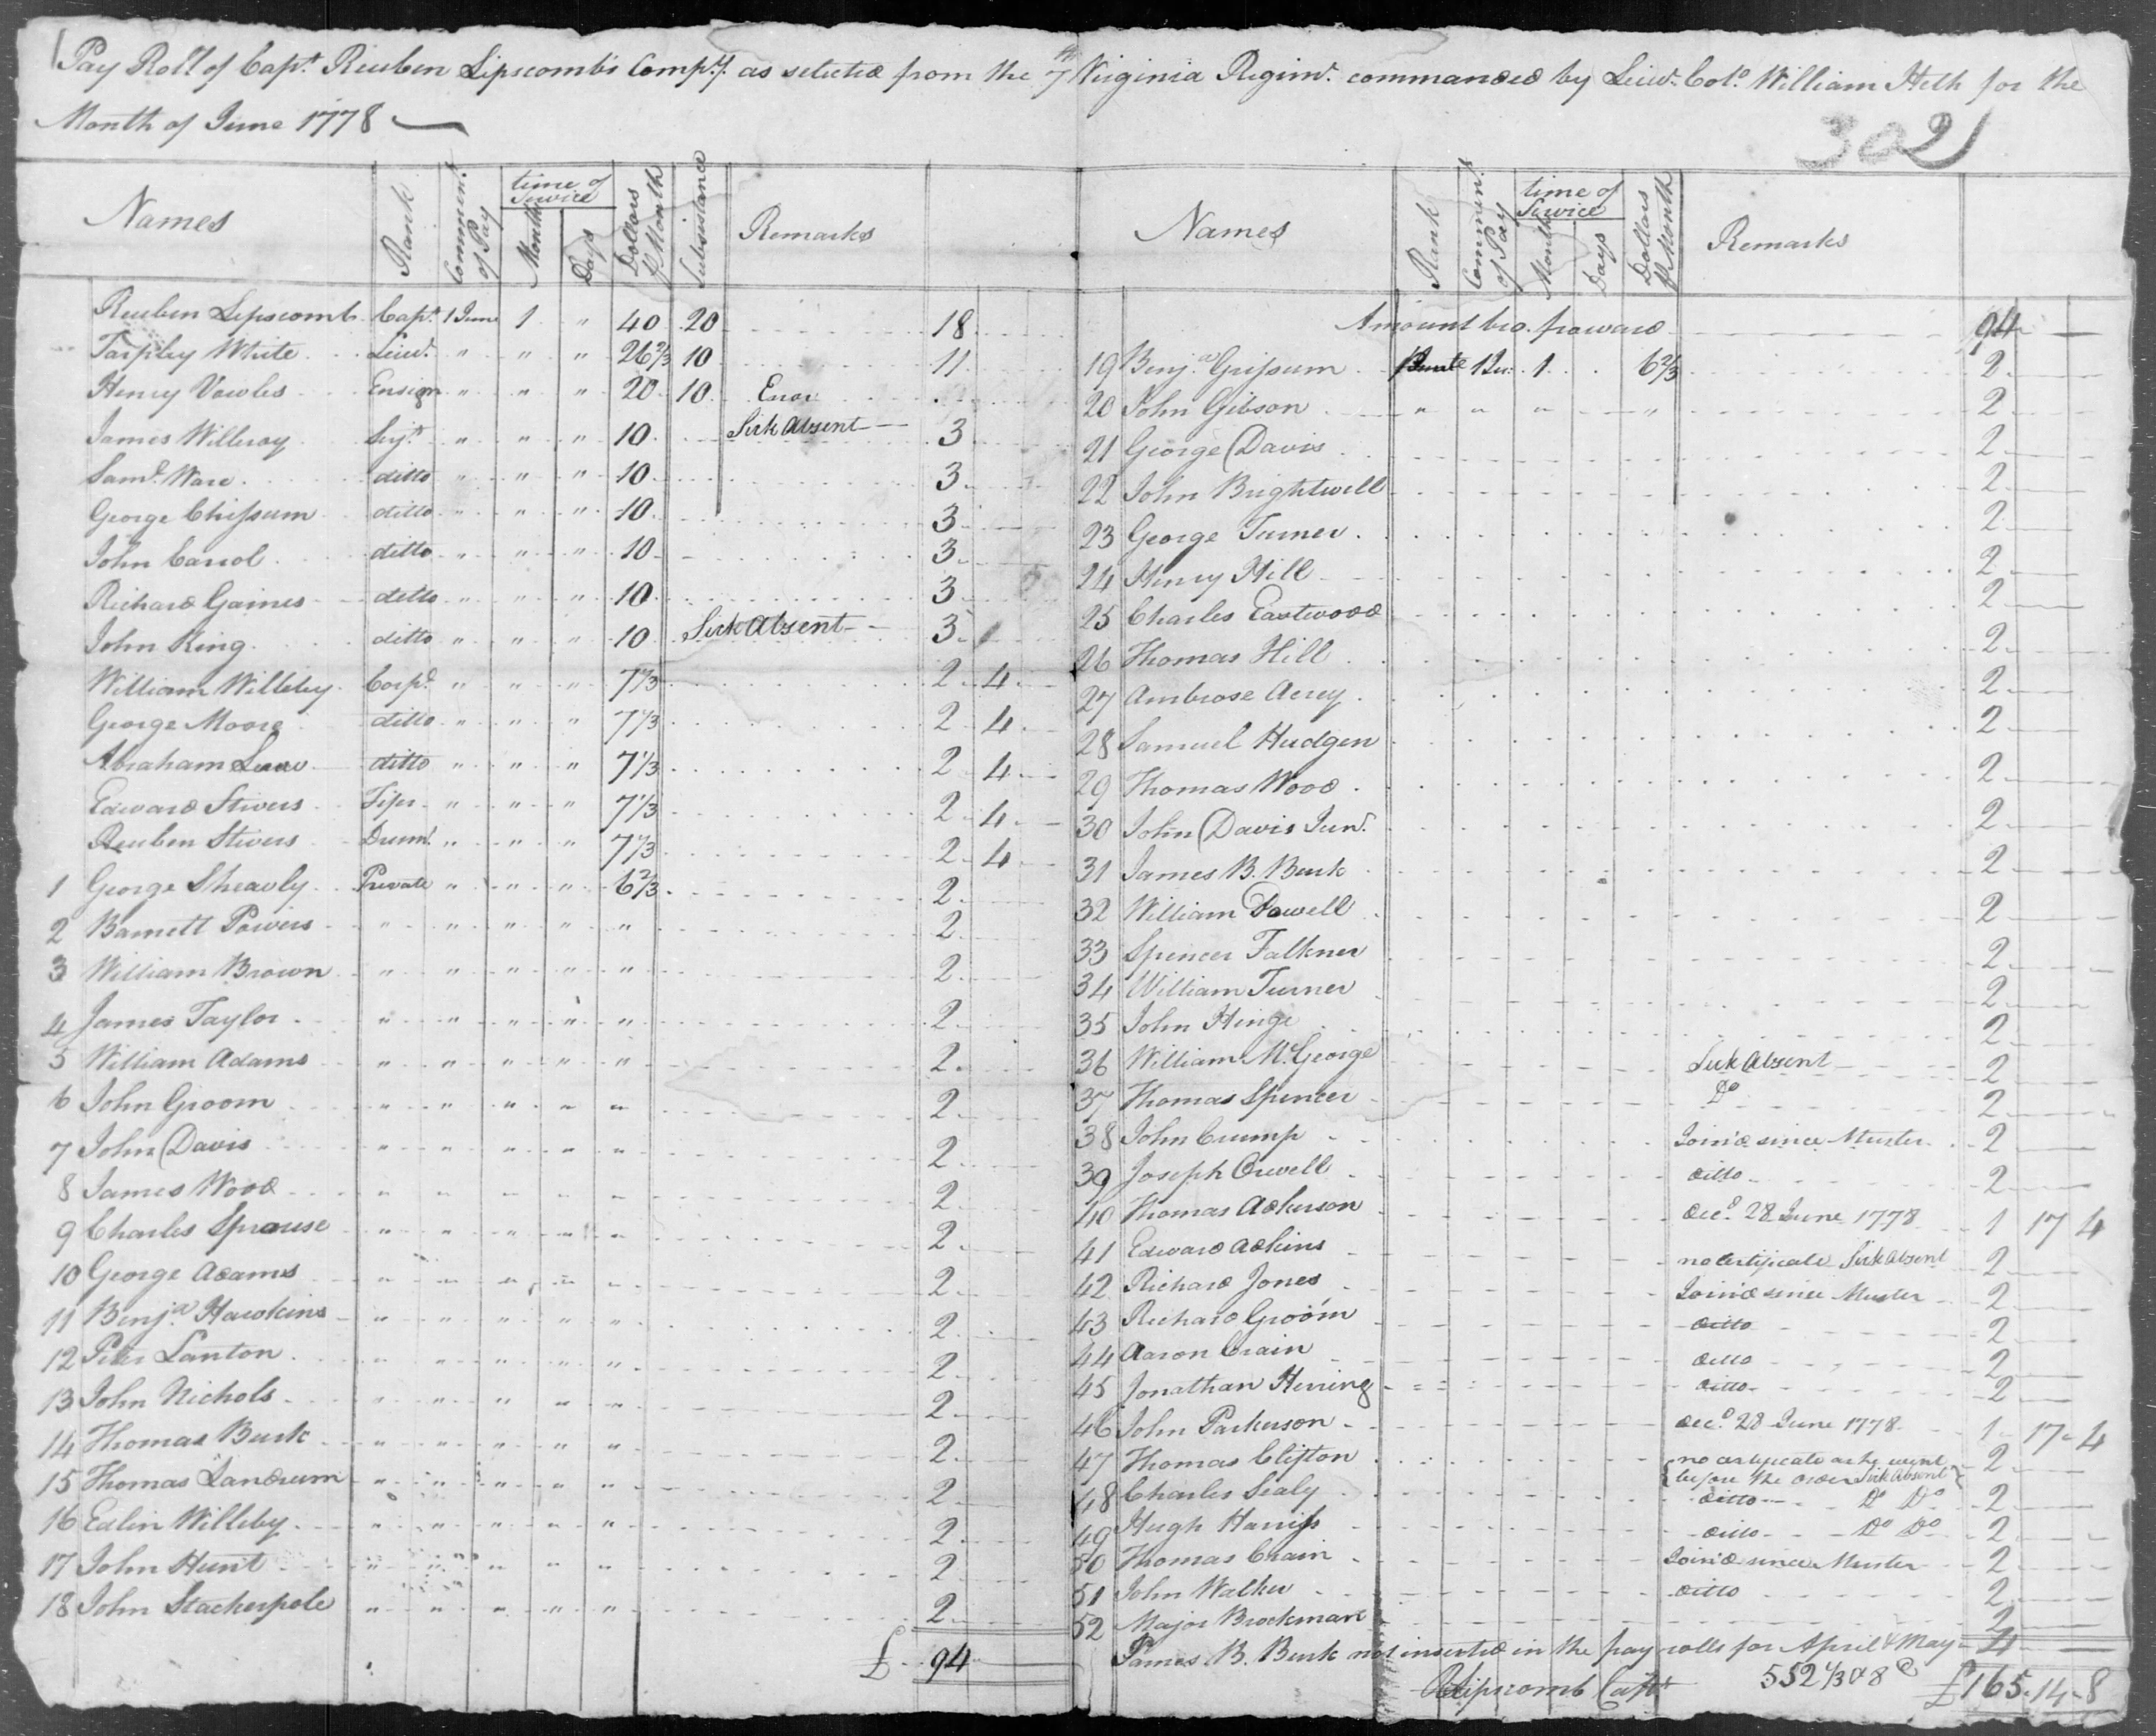 Pay Roll of Capt. Reuben Lipscomb's Compy. as selected from the 7th Virginia Regimt. commanded by Lieut. Colo. William Heth for the
Month of June 1778
302
Names Rank Commenmt. of Pay time of Service Months Days Dollars pr Month Subsistance Remarks
Reuben Lipscomb Capt. 1 June 1 " 40 20 18
Tarpley White Lieut. " " " 26 2/3 10 11
Henry Vowles Ensign " " " 20 10 Error
James Willeroy Serjt. " " " 10 Sick Absent 3
Saml. Ware ditto " " " 10 3
George Chissum ditto " " " 10 3
John Carrol ditto " " " 10 3
Richard Gaines ditto " " " 10 3
John King ditto " " " 10 Sick Absent 3
William Willeby Corpl. " " " 7 1/3 2 4
George Moore ditto " " " 7 1/3 2 4
Abraham ditto " " " 7 1/3 2 4
Edward Stivers Fifer " " " 7 1/3 2 4
Reuben Stivers Drumr. " " " 7 1/3 2 4
1 George Sheavly Private " " " 6 2/3 2
2 Barnett Powers " " " " " 2
3 William Brown " " " " " 2
4 James Taylor " " " " " 2
5 William Adams " " " " " 2
6 John Groom " " " " " 2
7 John Davis " " " " " 2
8 James Wood " " " " " 2
9 Charles Sprouse " " " " " 2
10 George Adams " " " " " 2
11 Benja. Hawkins " " " " " 2
12 Peter Lanton " " " " " 2
13 John Nichols " " " " " 2
14 Thomas Burk " " " " " 2
15 Thomas Landrum " " " " " 2
16 Edlin Willeby " " " " " 2
17 John Hunt " " " " " 2
18 John Stackerpole " " " " " 2
£ 94
Names Rank Commenmt. of Pay time of Service Months Days Dollars pr Month Remarks
Amount bro. forward 94
19 Benja. Grissum Private 1 Ju: 1 6 2/3 2
20 John Gibson " " " " 2
21 George Davis 2
22 John Brightwell 2
23 George Turner 2
24 Henry Hill 2
25 Charles Eastwood 2
26 Thomas Hill 2
27 Ambrose Acrey 2
28 Samuel Hudgen 2
29 Thomas Wood 2
30 John Davis Junr. 2
31 James B. Burk 2
32 William Powell 2
33 Spencer Falkner 2
34 William Turner 2
35 John Hinge 2
36 William McGeorge Sick Absent 2
37 Thomas Spencer Do 2
38 John Crump Join'd since Muster 2
39 Joseph Orwell ditto 2
40 Thomas Adkerson decd. 28 June 1778 1 17 4
41 Edward Adkins no certificate Sick Absent 2
42 Richard Jones Join'd since Muster 2
43 Richard Groom ditto 2
44 Aaron Crain ditto 2
45 Jonathan Hening ditto 2
46 John Parkerson decd. 28 June 1778 1 17 4
47 Thomas Clifton no certificate as he went before the order Sick Absent 2
48 Charles Sealy ditto Do Do 2
49 Hugh Harriss ditto Do Do 2
50 Thomas Crain Join'd since Muster 2
51 John Walker ditto 2
52 Major Brockman 2
James B. Burk not inserted in the pay rolls for April & May 4
RLipscomb Capt 552 1/3 & 8 £165.14.8